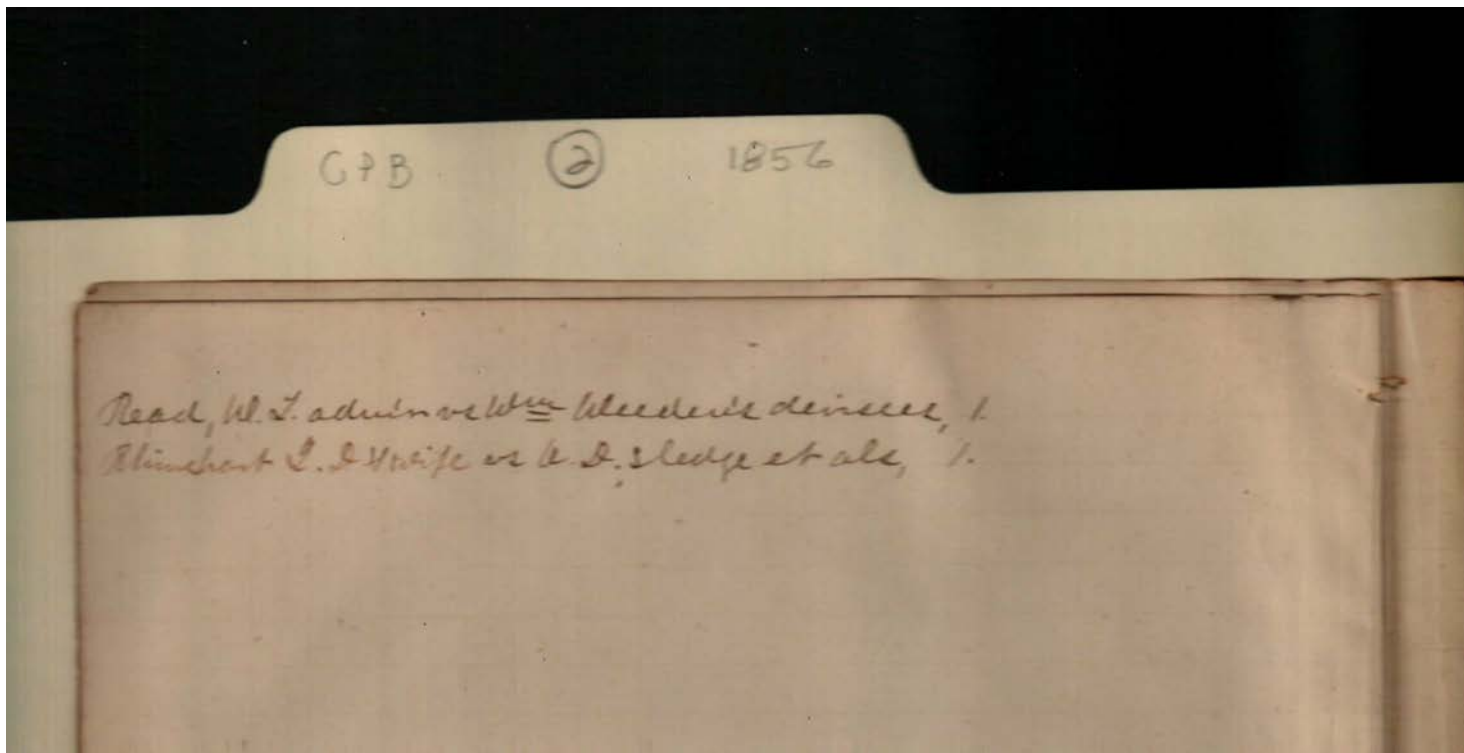 GPB 2 1856
Read, W. T. admin vs Wm devisees, 1.
Rhinehart & wife vs A. D. Sledge et als, 1.